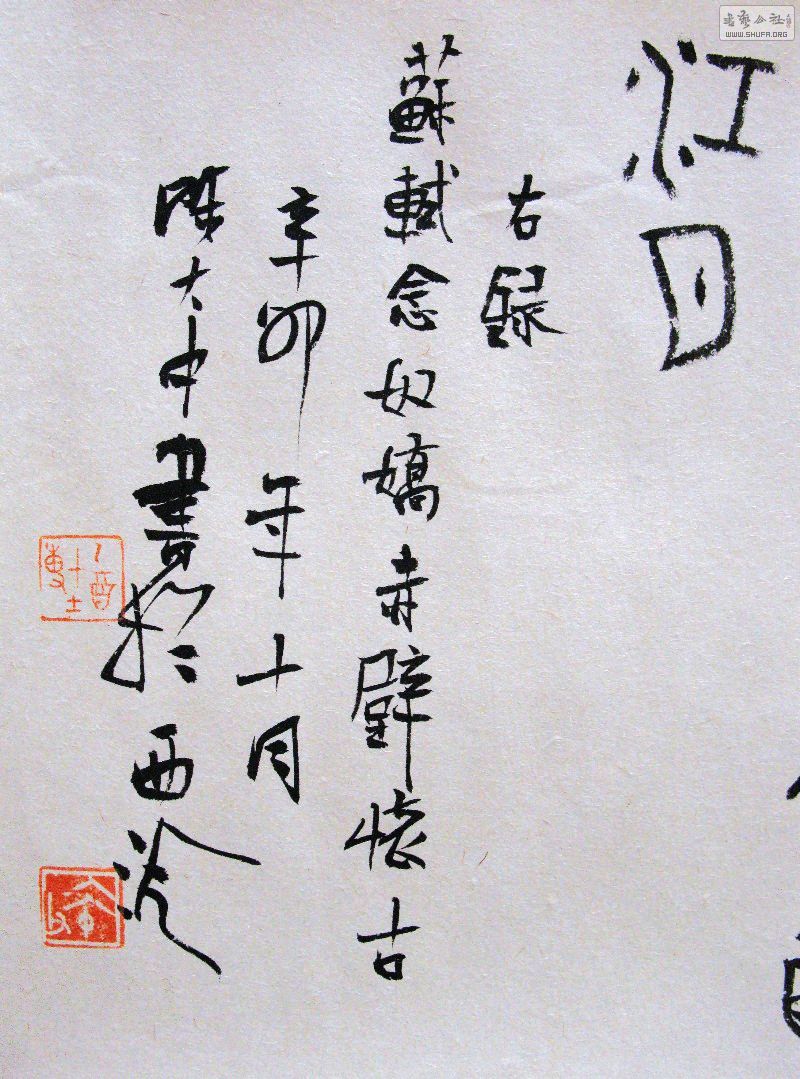 江月
右錄
蘇軾念奴嬌赤壁懷古
辛卯年十月
陳大中書於西泠
WWW.SHUFA.ORG